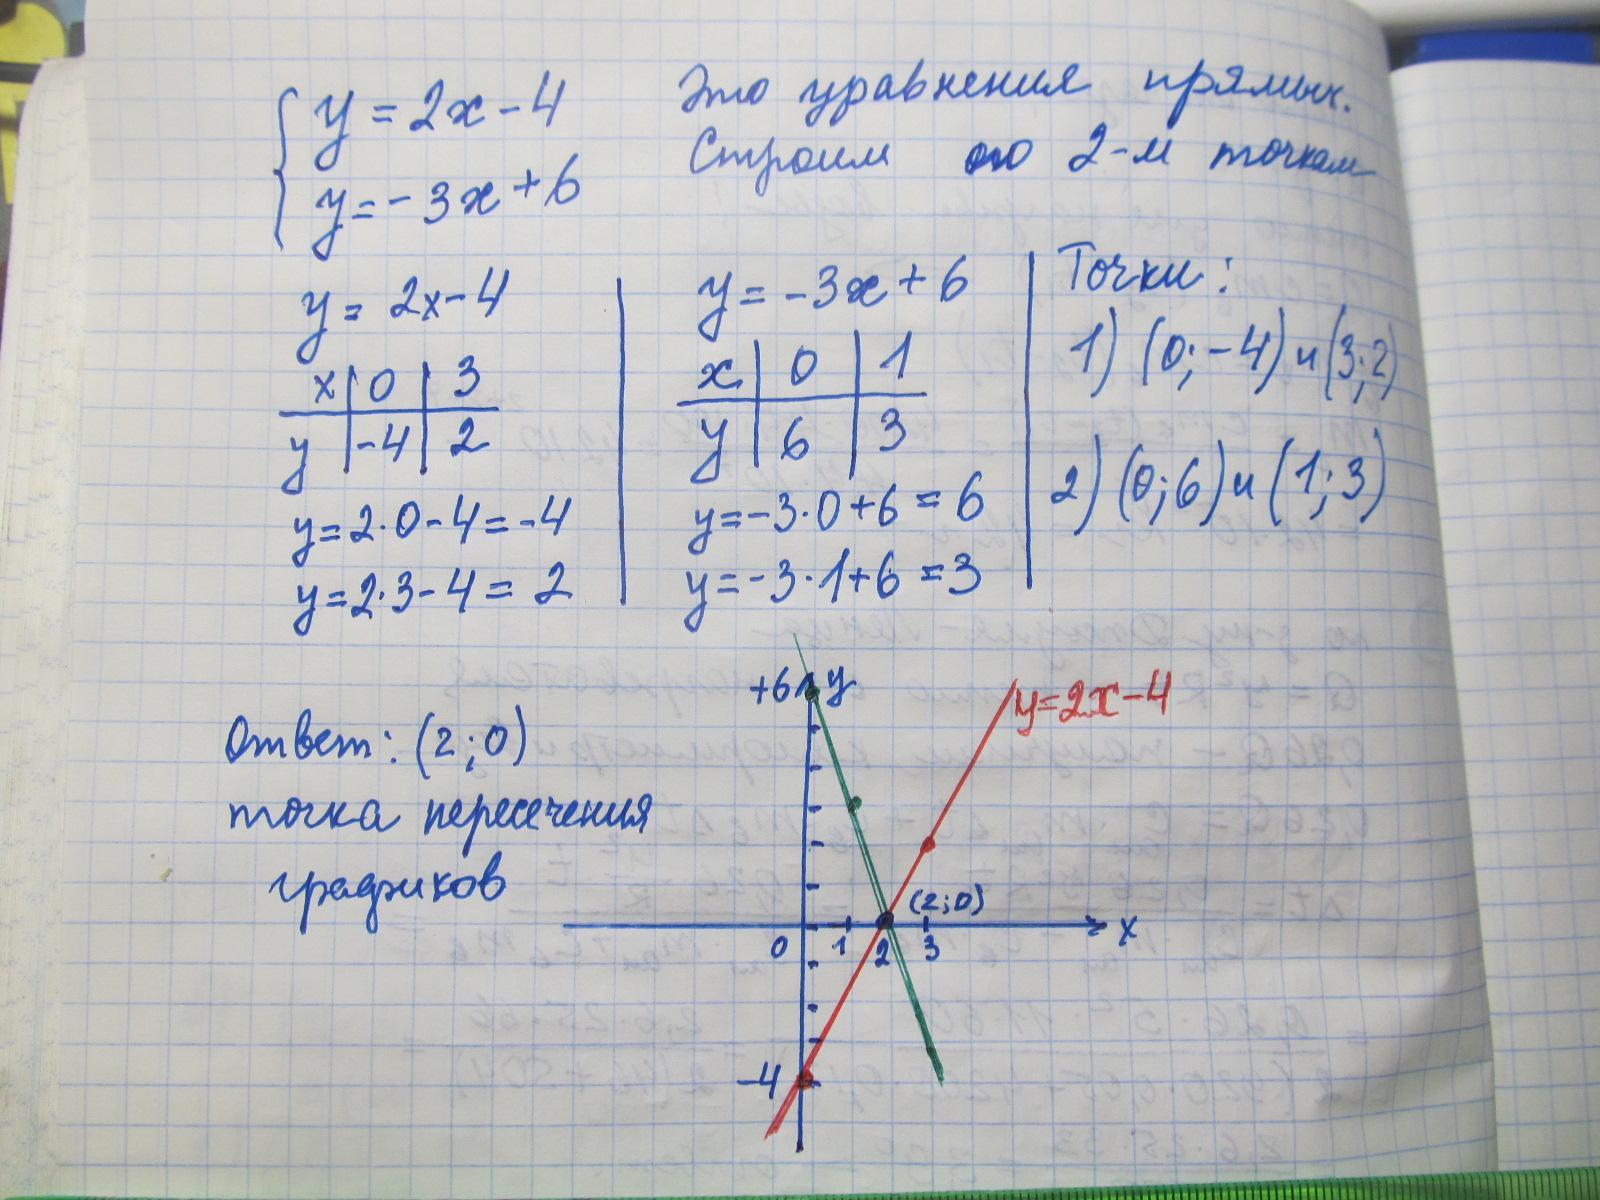 y = 2x - 4
y = -3x + 6
Это уравнения прямых.
Строим по 2-м точкам
y = 2x - 4
x | 0 | 3
y | -4 | 2
y = 2·0 - 4 = -4
y = 2·3 - 4 = 2
y = -3x + 6
x | 0 | 1
y | 6 | 3
y = -3·0 + 6 = 6
y = -3·1 + 6 = 3
Точки:
1) (0; -4) и (3; 2)
2) (0; 6) и (1; 3)
Ответ: (2; 0)
точка пересечения
графиков
+6 y
y = 2x - 4
(2; 0)
0 1 2 3 x
-4